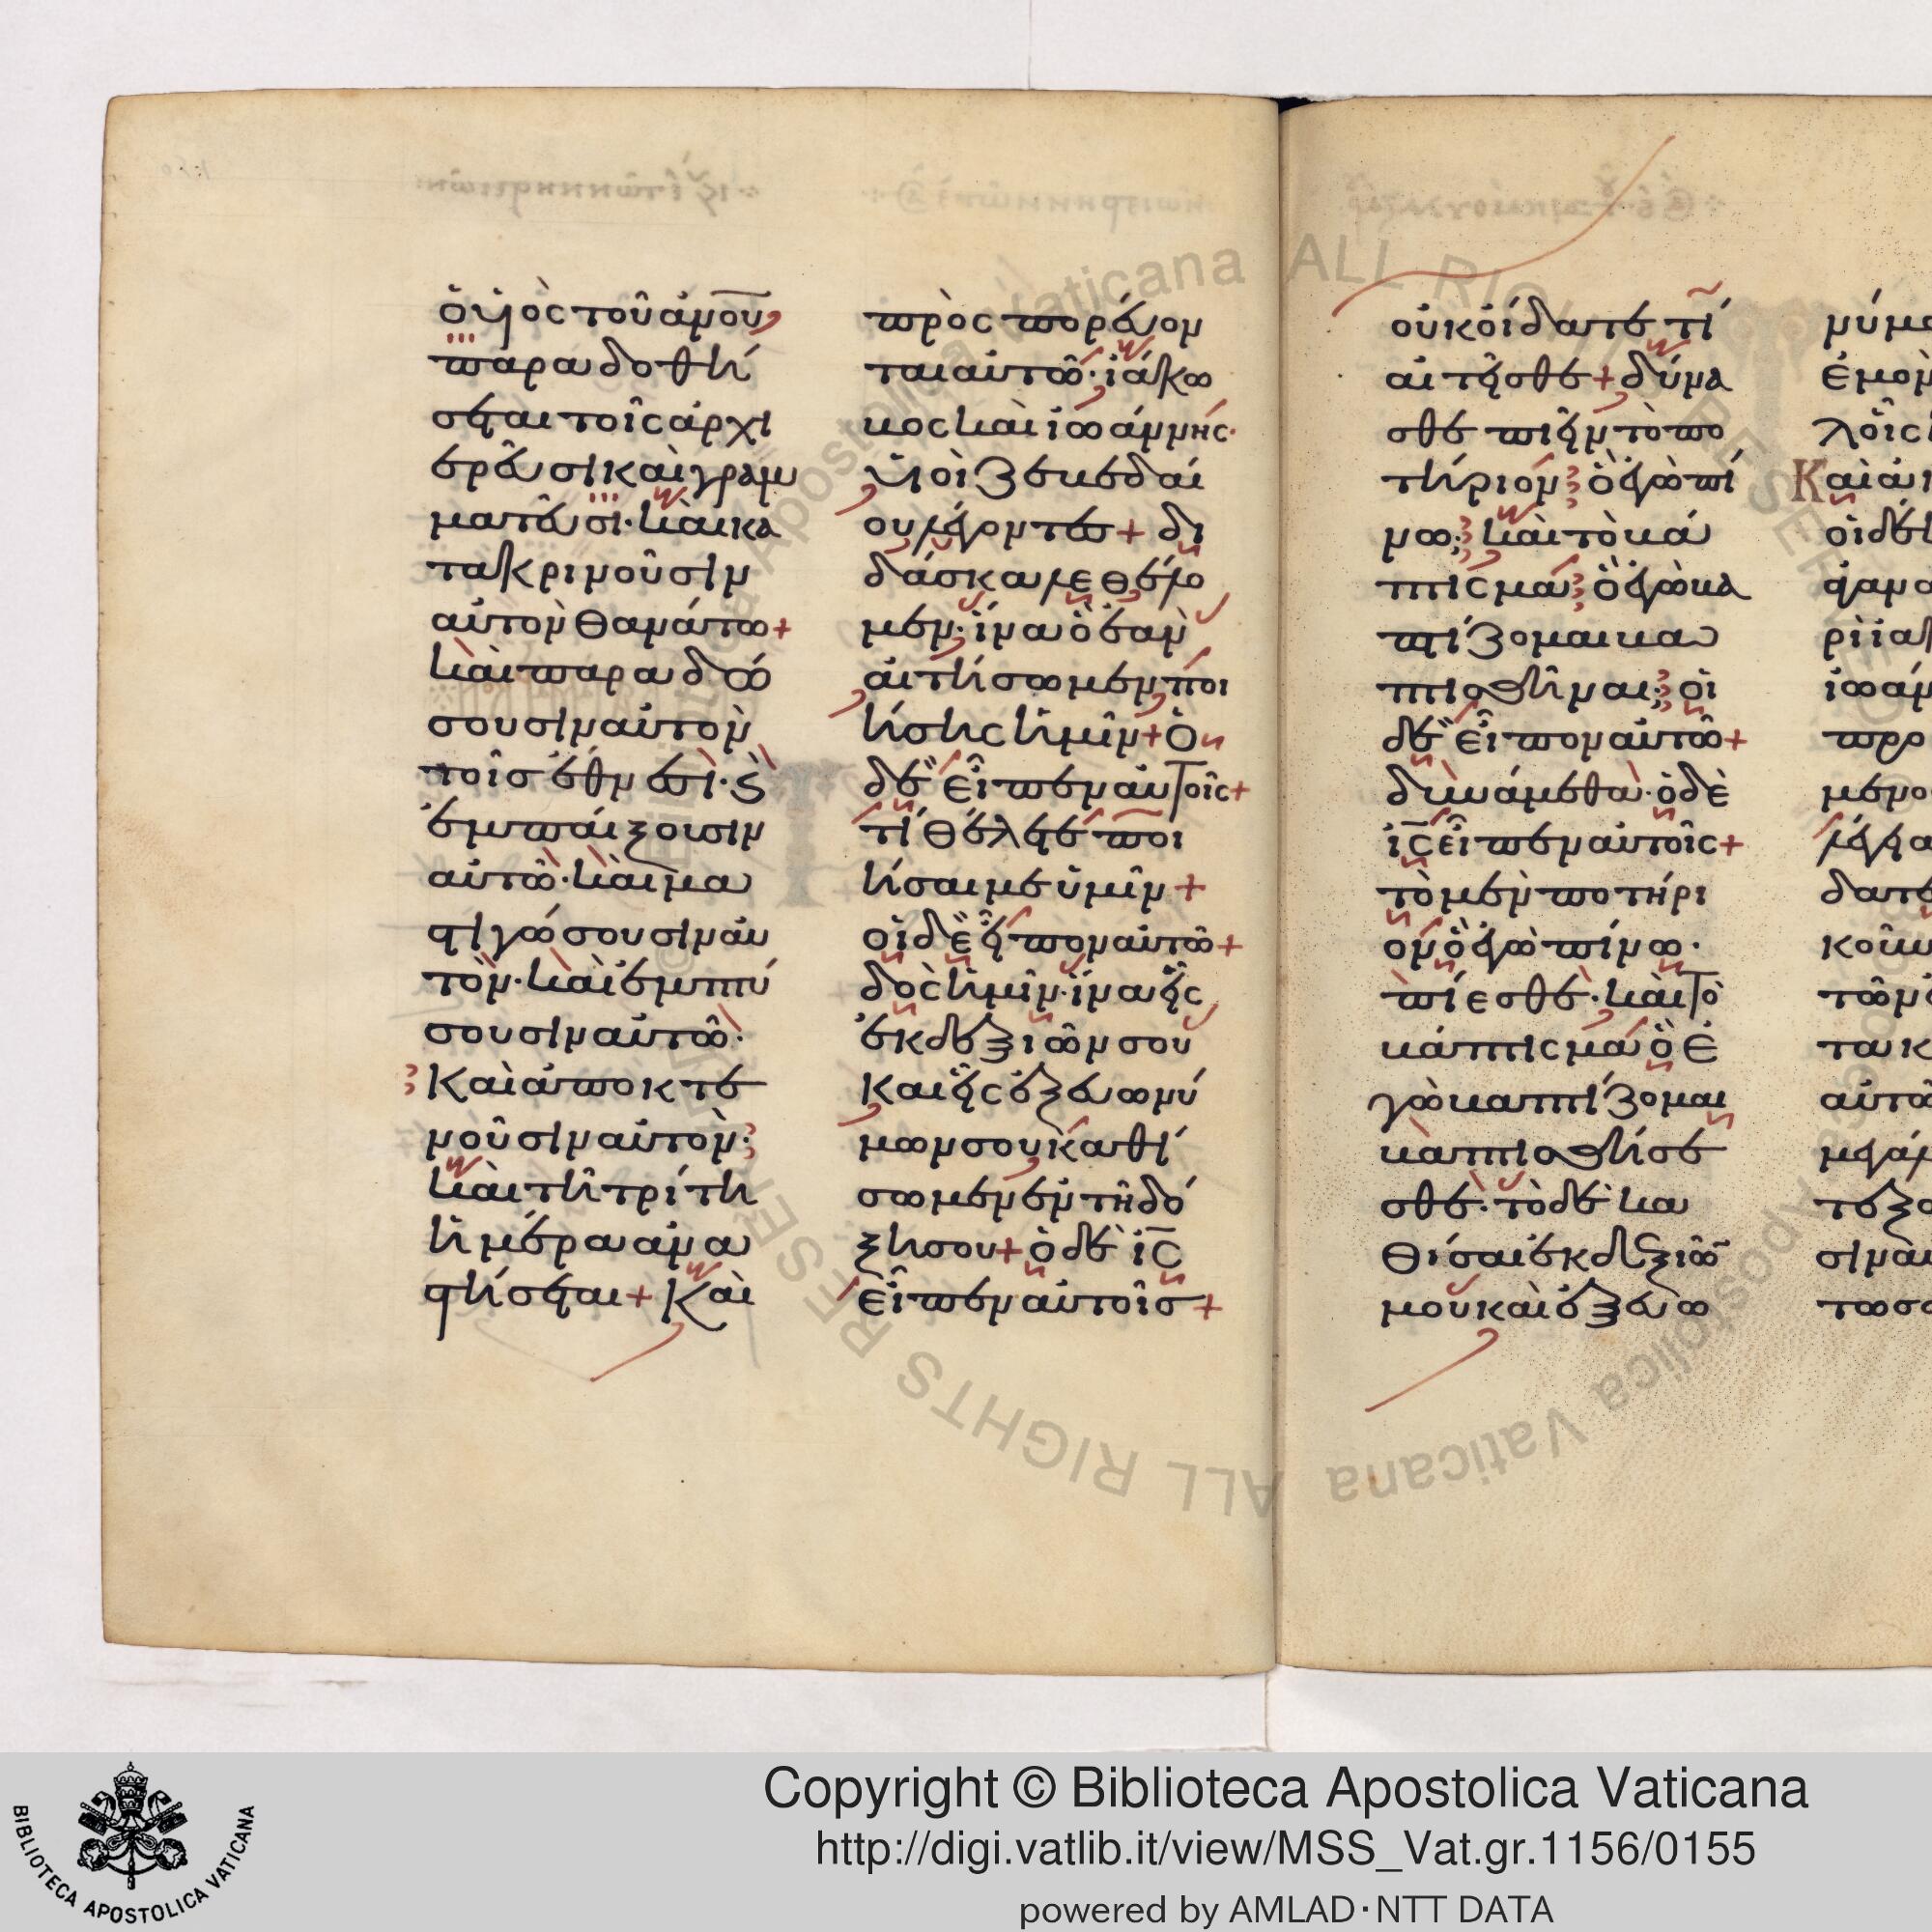 ὁ υἱὸς τοῦ ἀνου
παραδοθή
σεται τοῖς ἀρχι
ερεῦσι καὶ γραμ
ματεῦσι· καὶ κα
τακρινοῦσιν
αὐτὸν θανάτω+
καὶ παραδώ
σουσιν αὐτὸν
τοῖς ἔθνεσι· ϗ
ἐμπαίξουσιν
αὐτῶ· καὶ μα
στιγώσουσιν αὐ
τόν· καὶ ἐμπτύ
σουσιν αὐτῶ·
Καὶ ἀποκτε
νοῦσιν αὐτὸν·
καὶ τῆ τρίτη
ἡμέρα ἀνα
στήσεται+ Καὶ
προσπορεύον
ται αὐτῶ· ἰάκω
βος καὶ ἰωάννης·
υἱοὶ Ζεβεδαί
ου λέγοντες+ δι
δάσκαλε θέλο
μεν· ἵνα ὃ ἐὰν
αἰτήσωμεν ποι
ήσης ἡμῖν+ Ὁ
δὲ εἶπεν αὐτοῖς+
τί θέλετε ποι
ῆσαι με ὑμῖν+
οἱ δὲ εἶπον αὐτῶ+
δὸς ἡμῖν· ἵνα εἷς
ἐκ δεξιῶν σου
Καὶ εἷς ἐξ εὐωνύ
μων σου καθί
σωμεν ἐν τῆ δό
ξη σου+ ὁ δὲ ις
εἶπεν αὐτοῖς+
οὐκ οἴδατε τί
αἰτεῖσθε+ δύνα
σθε πιεῖν τὸ πο
τήριον ὃ ἐγὼ πί
νω; καὶ τὸ βά
πτισμα ὃ ἐγὼ βα
πτίζομαι βα
πτισθῆναι; οἱ
δὲ εἶπον αὐτῶ+
δυνάμεθα· ὁ δὲ
ις εἶπεν αὐτοῖς+
τὸ μὲν ποτήρι
ον ὃ ἐγὼ πίνω·
πίεσθε· καὶ τὸ
βάπτισμα ὃ ἐ
γὼ βαπτίζομαι
βαπτισθήσε
σθε· τὸ δὲ κα
θίσαι ἐκ δεξιῶ
μου καὶ ἐξ εὐω
Copyright © Biblioteca Apostolica Vaticana
http://digi.vatlib.it/view/MSS_Vat.gr.1156/0155
powered by AMLAD·NTT DATA
BIBLIOTECA APOSTOLICA VATICANA